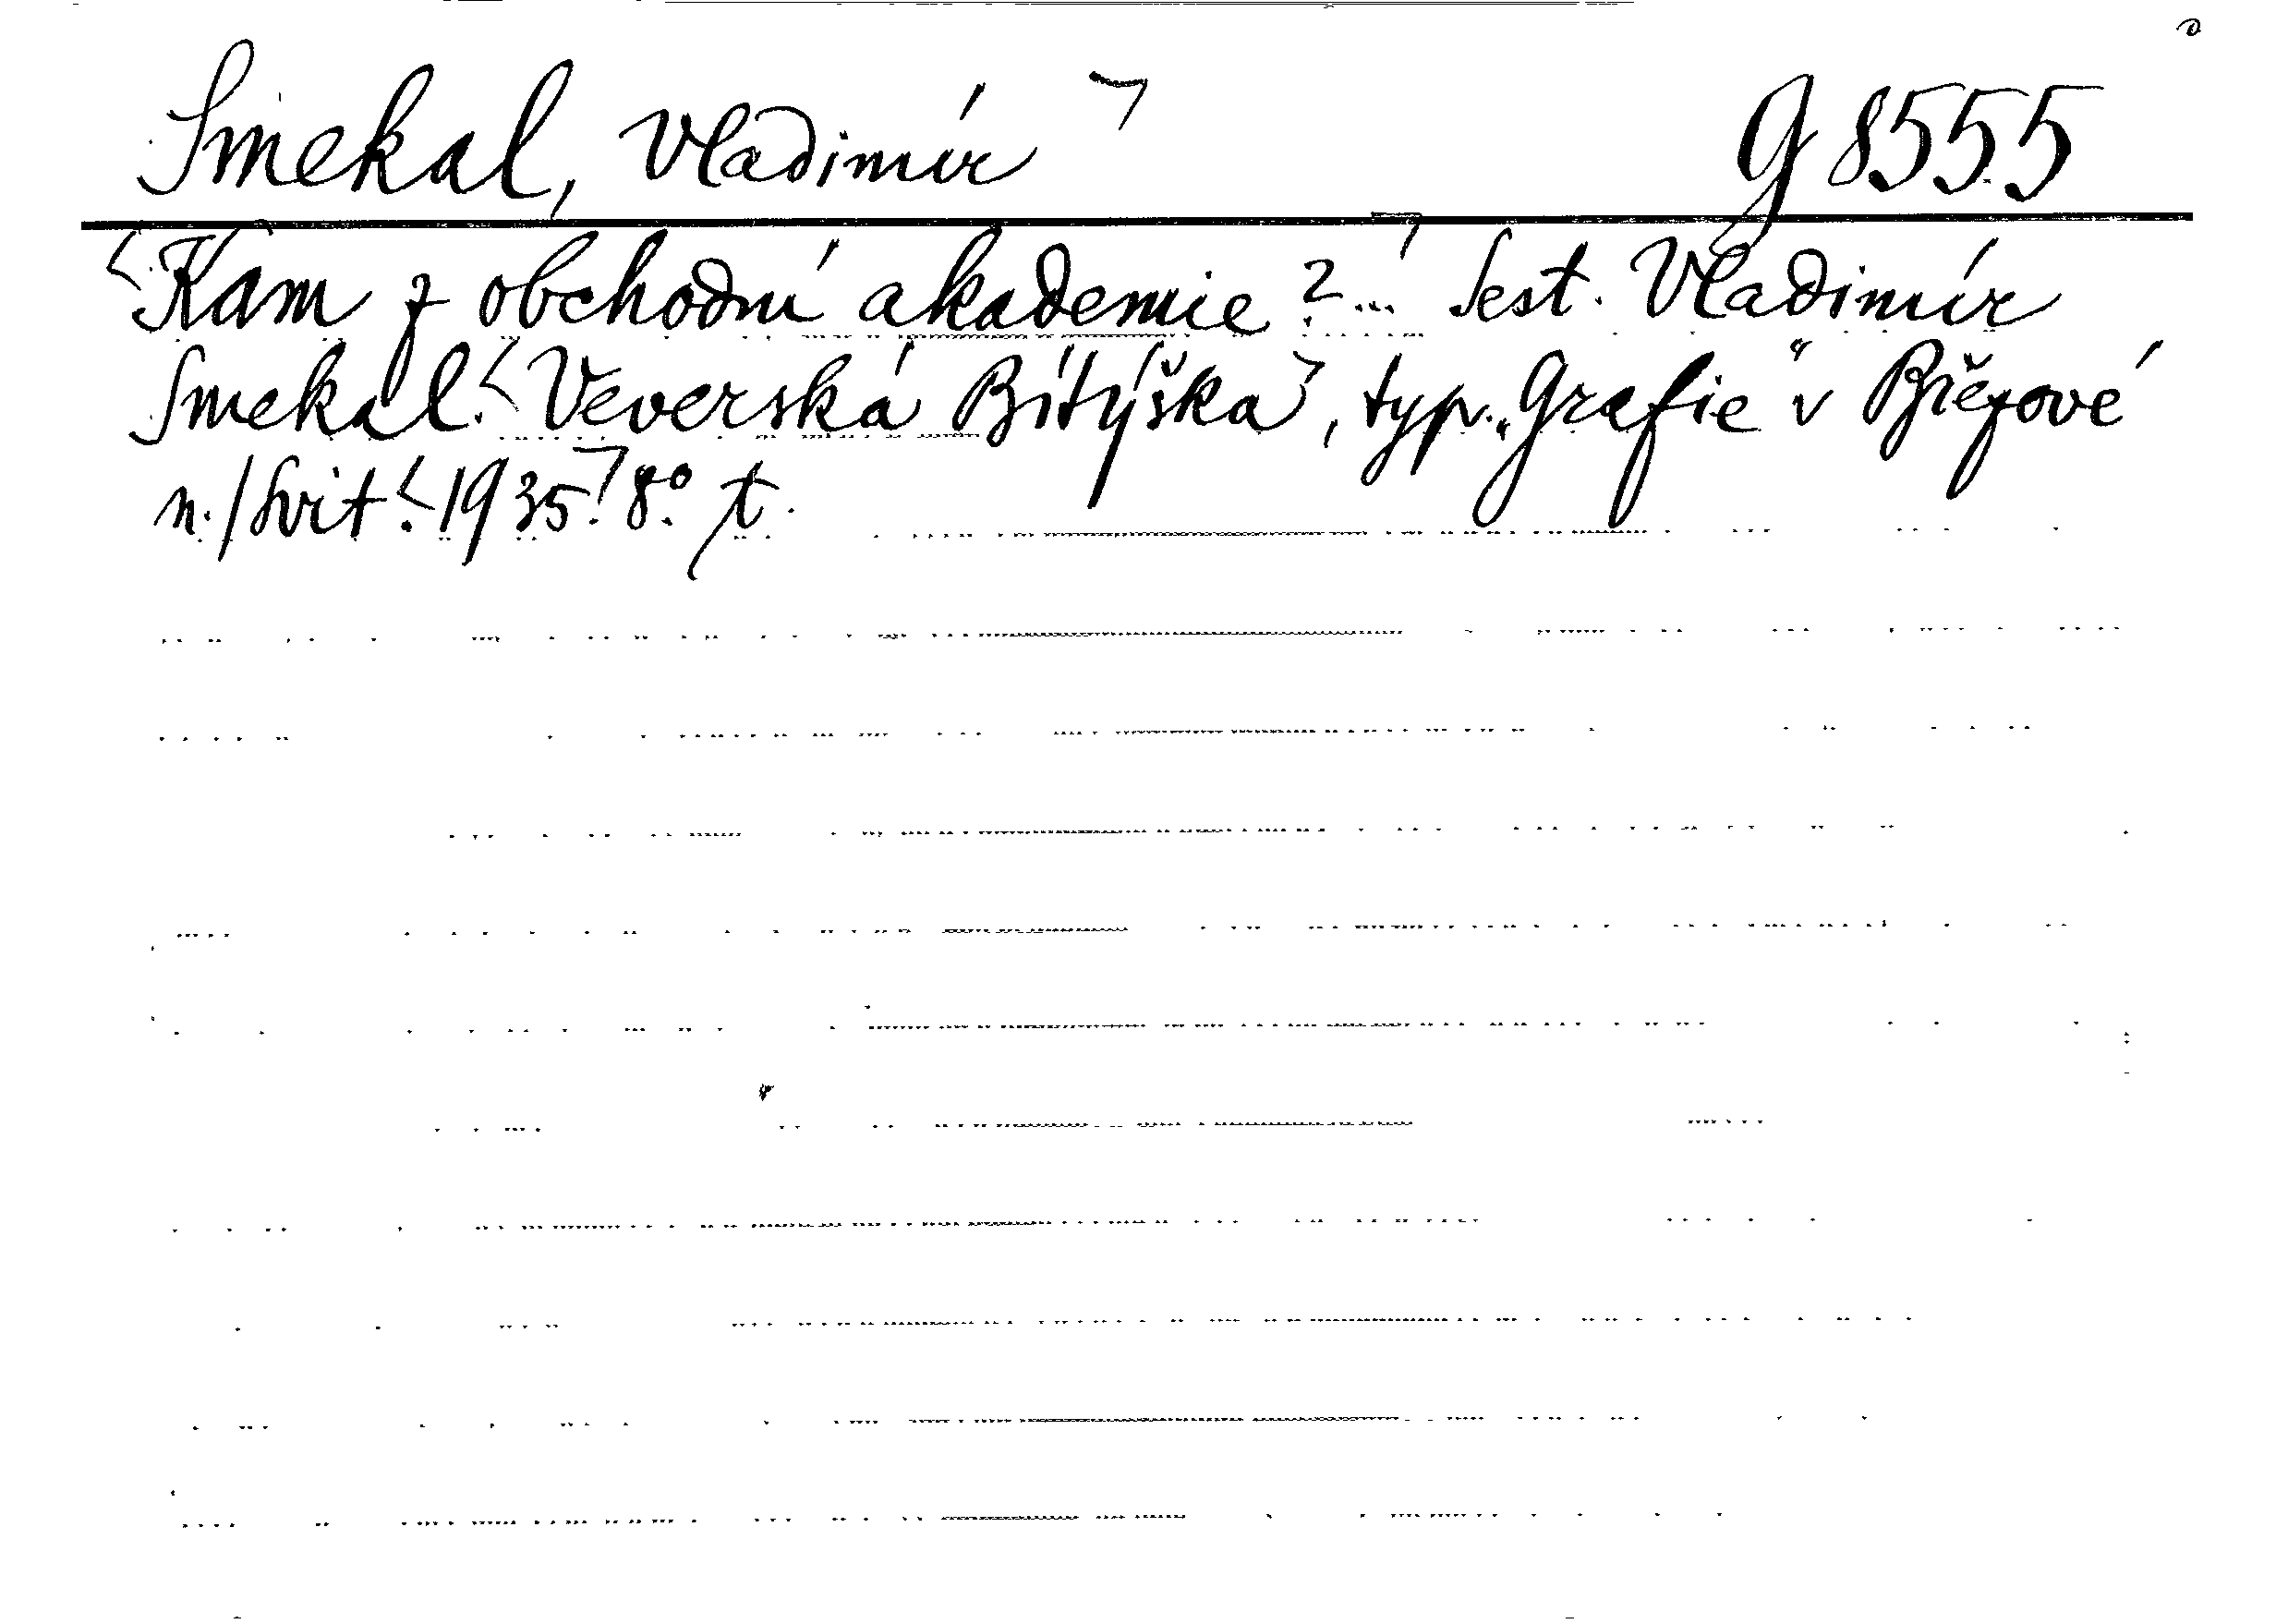 Smekal, Vladimír G 8555
Kam z obchodní akademie?... Sest. Vladimír
Smekal. Veverská Bítýška, typ. „Grafie“ v Březové
n./Svit. 1935. 8° t.